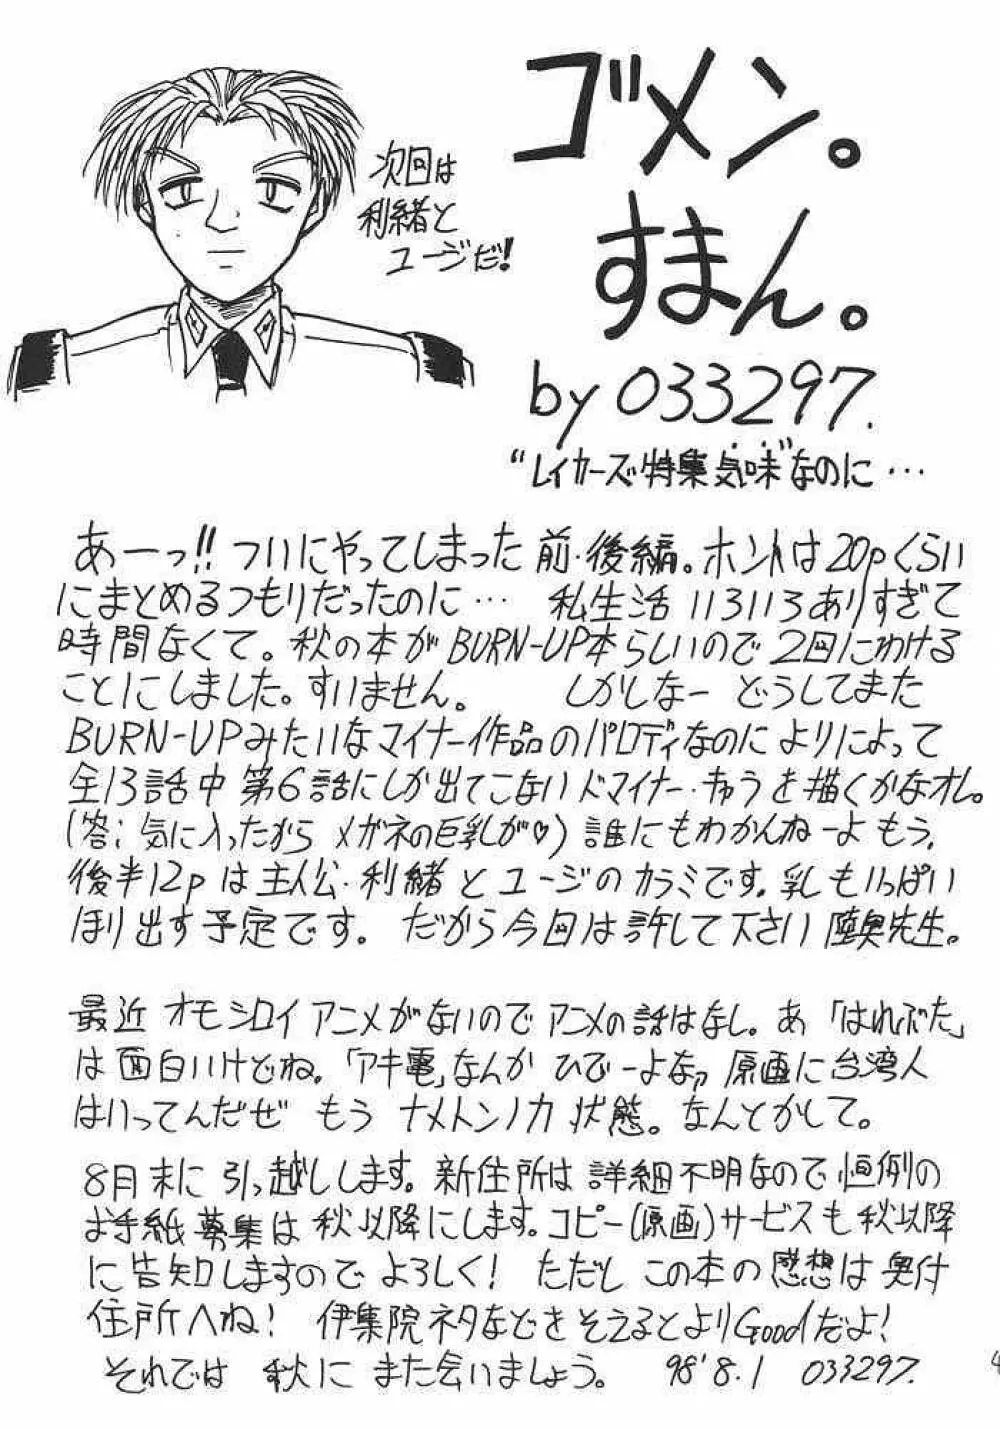 ゴメン。
すまん。
次回は
利緒と
ユージだ!
by 033297.
"レイカーズ特集気味"なのに…
あーっ!!ついにやってしまった前・後編。ホントは20pくらい
にまとめるつもりだったのに… 私生活いろいろありすぎて
時間なくて。秋の本がBURN-UP本らしいので2回にわける
ことにしました。すいません。 しかしなー どうしてまた
BURN-UPみたいなマイナー作品のパロディなのによりによって
全13話中第6話にしか出てこないドマイナー・キャラを描くかなオレ。
(答;気に入ったから メガネの巨乳が♡)誰にもわかんねーよもう。
後半12pは主人公・利緒とユージのカラミです。乳もいっぱい
ほり出す予定です。 だから今回は許して下さい 陸奥先生。
最近オモシロイアニメがないのでアニメの話はなし。あ「はれぶた」
は面白いけどね。「アキ電」なんかひでーよなァ 原画に台湾人
はいってんだぜ もう ナメトンノカ状態。なんとかして。
8月末に引っ越しします。新住所は詳細不明なので恒例の
お手紙募集は秋以降にします。コピー(原画)サービスも秋以降
に告知しますのでよろしく! ただしこの本の感想は奥付
住所へね! 伊集院ネタなどをそえるとよりGoodだよ!
それでは 秋にまた会いましょう。 98'8.1 033297.